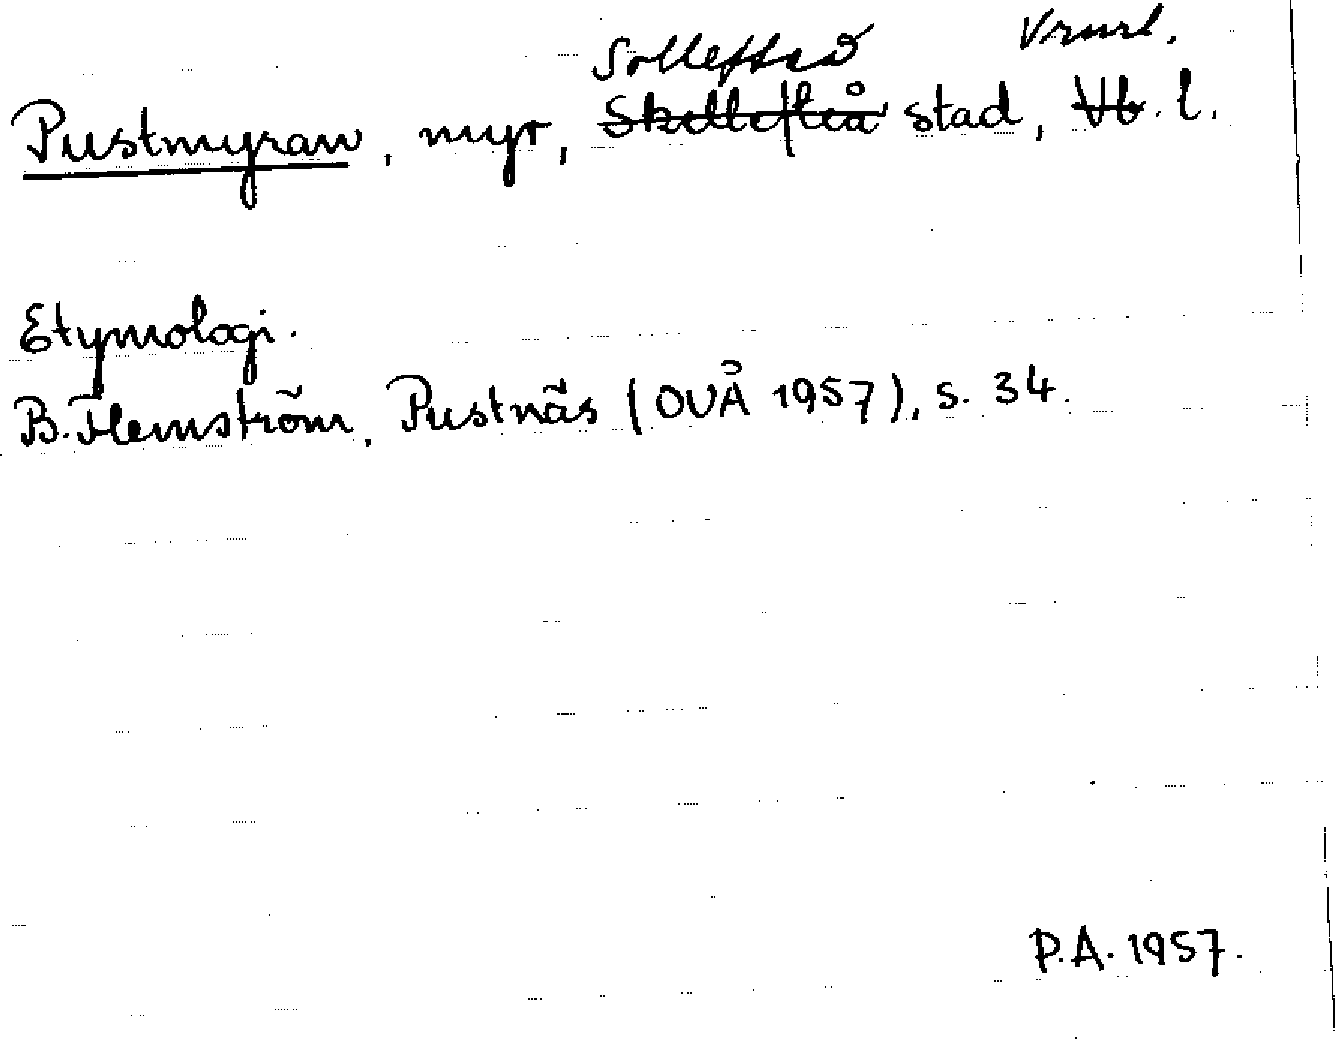 Sollefteå
Pustmyran, myr, Skellefteå stad, Vb. l.
Etymologi.
B. Flemström, Pustnäs (OUÅ 1957), s. 34.
P.A. 1957.